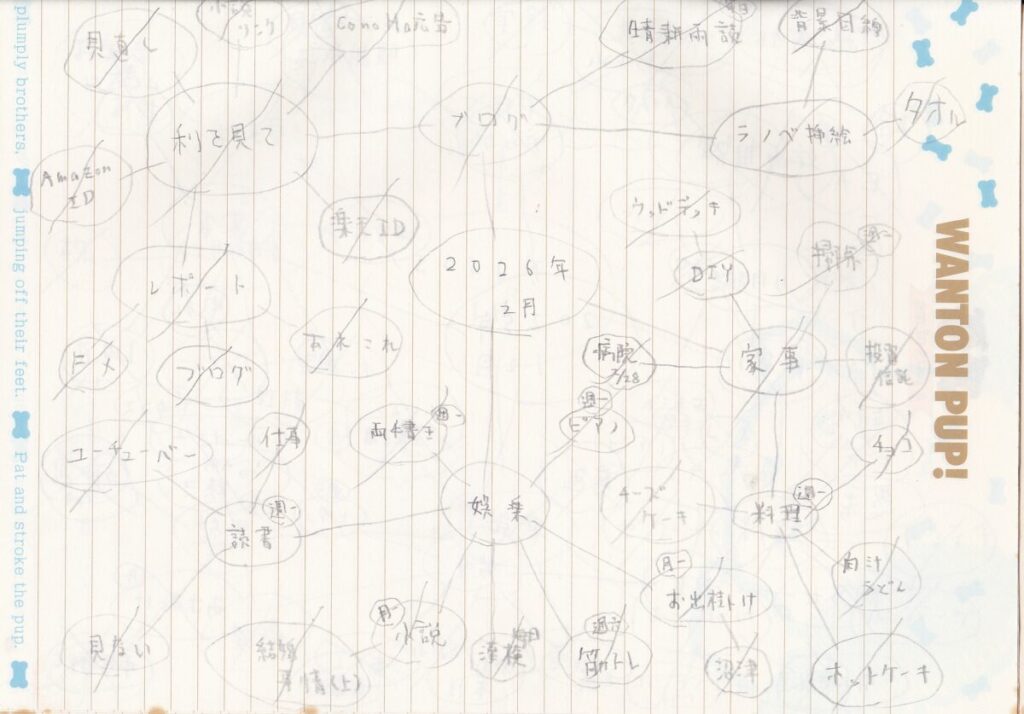 見直し
リンク
ConoHa広告
晴耕雨読
毎日
背景目線
利を見て
ブログ
ラノベ挿絵
タオル
Amazon
ID
楽天ID
ウッドデッキ
DIY
掃除
週一
2026年
2月
レポート
あれこれ
ブログ
病院
2/28
家事
投資
信託
ユーチューバー
仕事
両手書き
週一
週一
ピアノ
チョコ
読書
週一
娯楽
チーズ
ケーキ
料理
週一
月一
お出掛け
肉汁
うどん
見ない
月一
小説
漢検
毎日
筋トレ
沼津
ホットケーキ
WANTON PUP!
plumply brothers.
jumping off their feet.
Pat and stroke the pup.